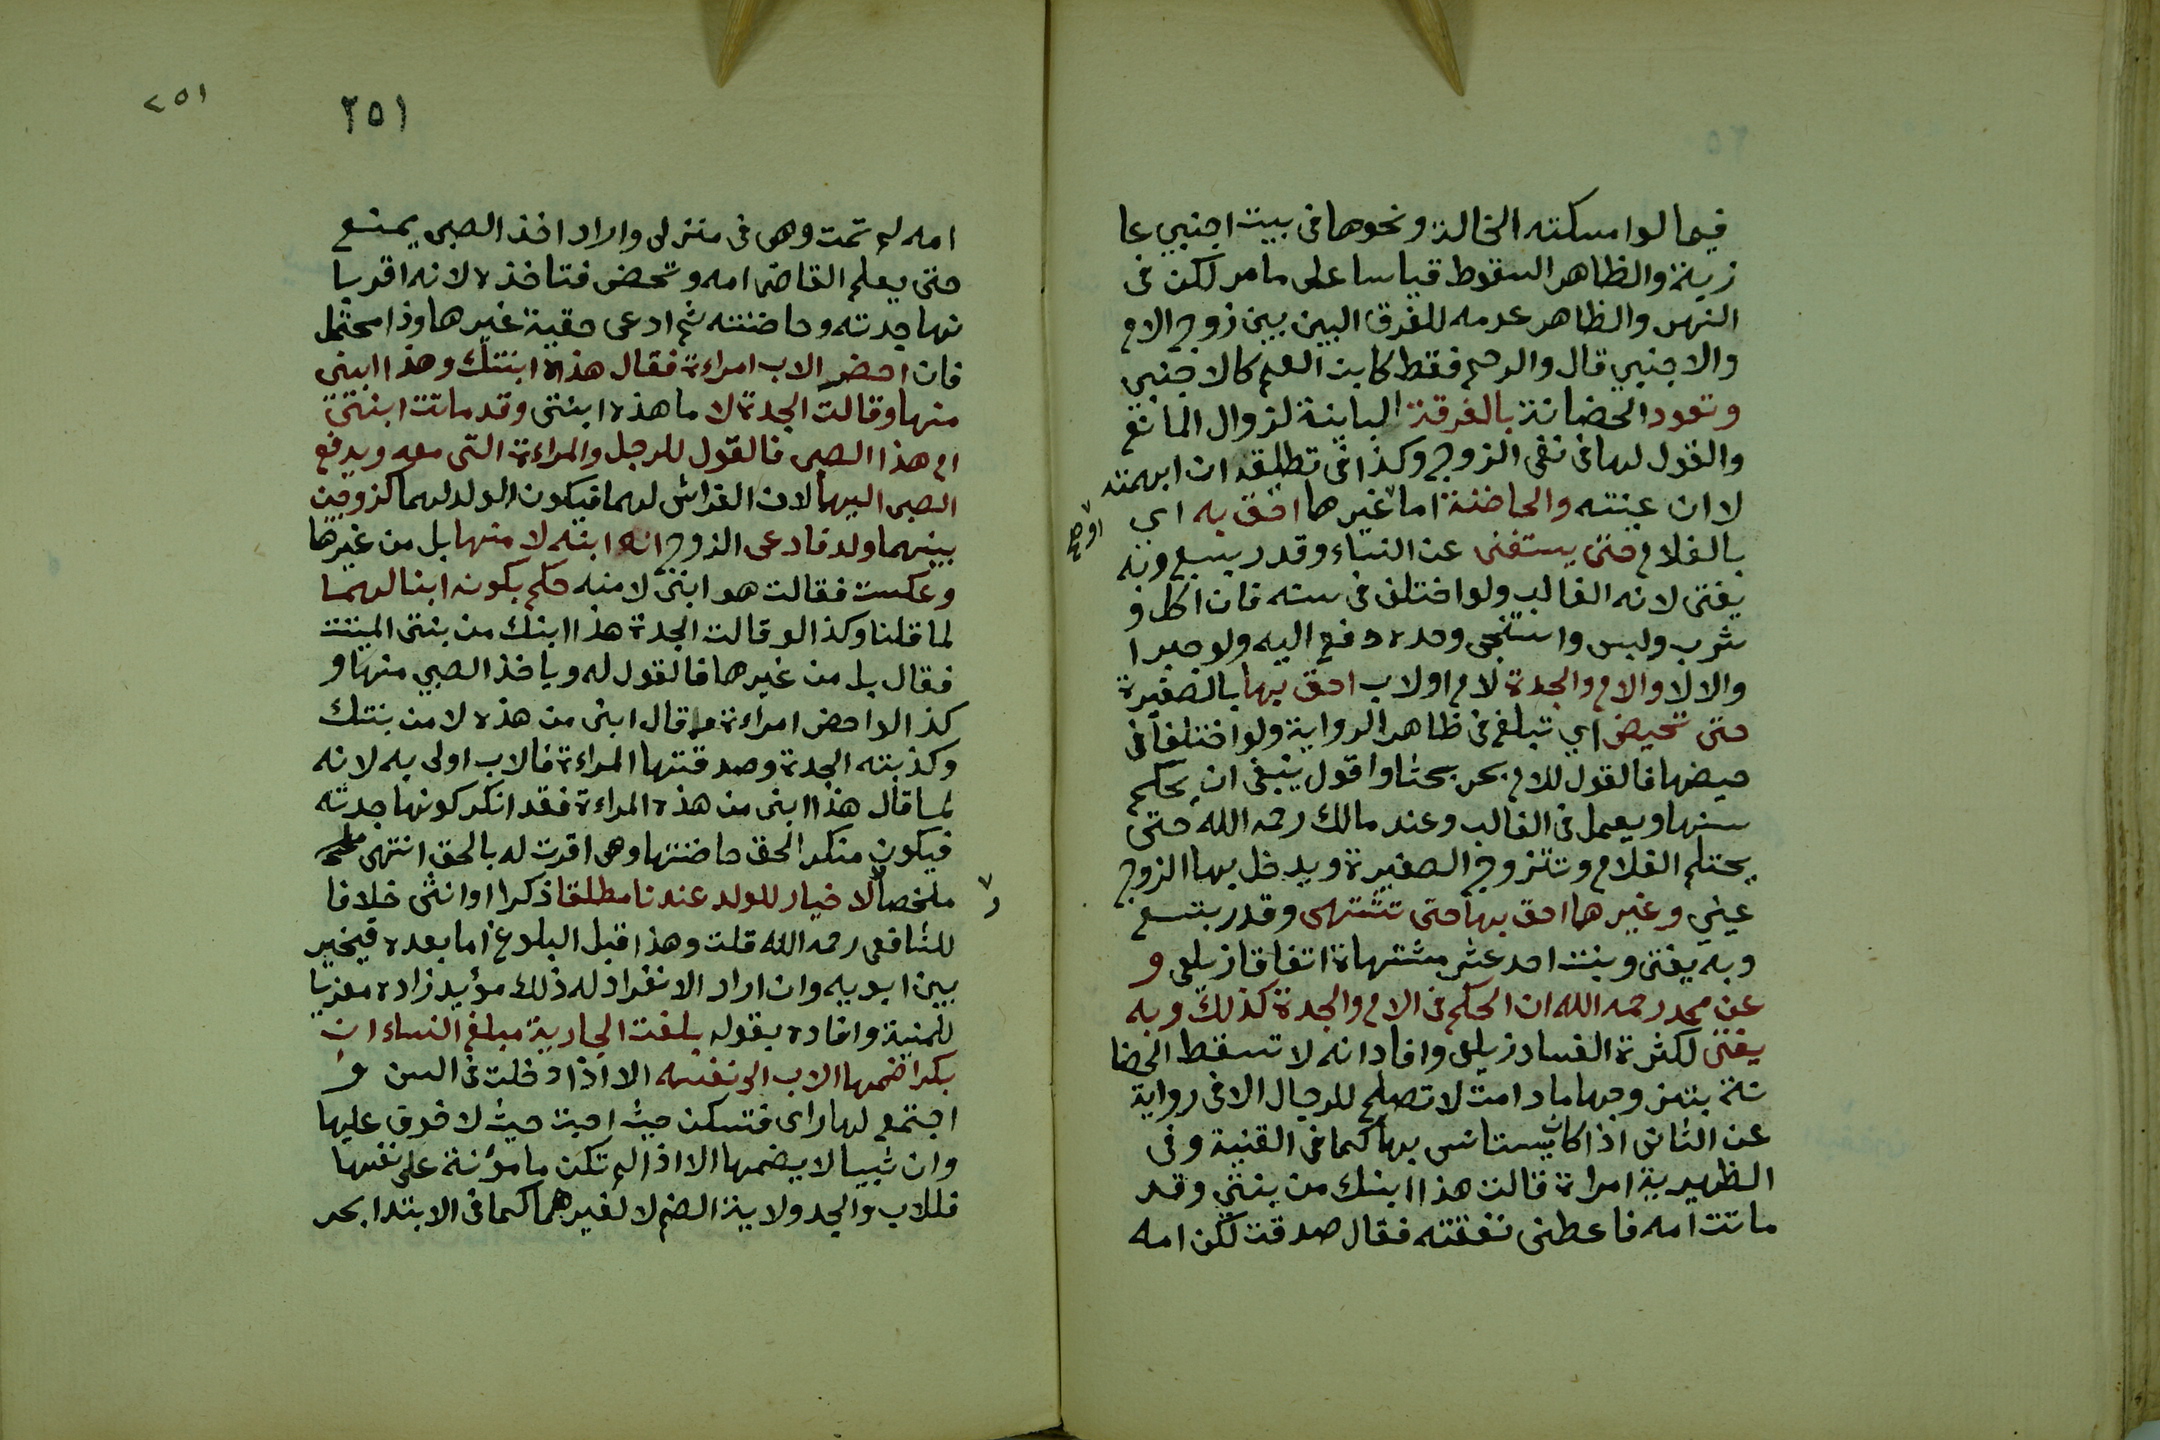 فيما لو امسكته الخالة ونحوها في بيت اجنبي عا
زبة والظاهر السقوط قياسا على ما مر لكن في
النهر والظاهر عدمه للفرق البين بين زوج الام
والاجنبي قال والرحم فقط كابن العم كالاجنبي
وتعود الحضانة بالفرقة الباينة لزوال المانع
والقول لها في نفي الزوج وكذا في تطليقه ان ابهمته
لا ان عينته والحاضنة اما او غيرها احق به اي
بالغلام حتى يستغنى عن النساء وقدر بسبع وبه
يفتى لانه الغالب ولو اختلف في سنه فان اكل و
شرب ولبس واستنجى وحده دفع اليه ولو جبرا
والا لا والام والجدة لام او لاب احق بها بالصغيرة
حتى تحيض اي تبلغ في ظاهر الرواية ولو اختلفا في
حيضها فالقول للام بحر بحثا واقول ينبغي ان يحكم
سنها ويعمل في الغالب وعند مالك رحمه الله حتى
يحتلم الغلام وتتزوج الصغيرة ويدخل بها الزوج
عيني وغيرهما احق بها حتى تشتهى وقدر بتسع
وبه يفتى وبنت احد عشر مشتهاة اتفاقا زيلعي و
عن محمد رحمه الله ان الحكم في الام والجدة كذلك وبه
يفتى لكثرة الفساد زيلعي وافاد انه لا تسقط الحضا
نة بتزوجها ما دامت لا تصلح للرجال الا في رواية
عن الثاني اذا كان يستانس بها كما في القنية وفي
الظهيرية امراة قالت هذا ابنك من بنتي وقد
ماتت امه فاعطني نفقته فقال صدقت لكن امه
٢٥١
٢٥١
امه لم تمت وهي في منزلي واراد اخذ الصبي يمنع
حتى يعلم القاضي امه وتحضر فتاخذه لانه اقر با
نها جدته وحاضنته ثم ادعى حقية غيرها وذا محتمل
فان احضر الاب امراءة فقال هذه ابنتك وهذا ابني
منها وقالت الجدة لا ما هذه ابنتي وقد ماتت ابنتي
ام هذا الصبي فالقول للرجل والمراءة التي معه ويدفع
الصبي اليهما لان الفراش لهما فيكون الولد لهما كزوجين
بينهما ولد فادعى الزوج انه ابنه لا منها بل من غيرها
وعكست فقالت هو ابني لا منه حكم بكونه ابنا لهما
لما قلنا وكذا لو قالت الجدة هذا ابنك من بنتي الميتة
فقال بل من غيرها فالقول له وياخذ الصبي منها و
كذا لو احضر امراءة وقال ابني من هذه لا من بنتك
وكذبته الجدة وصدقتها المراءة فالاب اولى به لانه
لما قال هذا ابني من هذه المراءة فقد انكر كونها جدته
فيكون منكرا لحق حاضنتها وهي اقرت له بالحق انتهى
ملخصا لا خيار للولد عندنا مطلقا ذكرا او انثى خلافا
للشافعي رحمه الله قلت وهذا قبل البلوغ اما بعده فيخير
بين ابويه وان اراد الانفراد له ذلك مؤيد زاده معزيا
للمنية وافاده بقوله بلغت الجارية مبلغ النساء ان
بكرا ضمها الاب الى نفسه الا اذا دخلت في السن و
اجتمع لها راى فتسكن حيث احبت حيث لا خوف عليها
وان ثيبا لا يضمها الا اذا لم تكن مامؤنة على نفسها
فللاب والجد ولاية الضم لا لغيرهما كما في الابتدا بحر